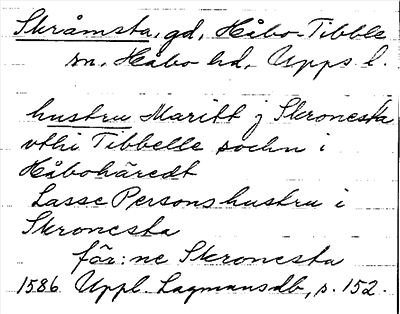 Skråmsta, gd, Håbo-Tibble
sn, Håbo hd, Upps l.
hustru Maritt j Skronesta
vthi Tibbelle sochn i
Håbohäredt
Lasse Persons hustru i
Skronesta
för:ne Skronesta
1586 Uppl. Lagmansdb, s. 152.